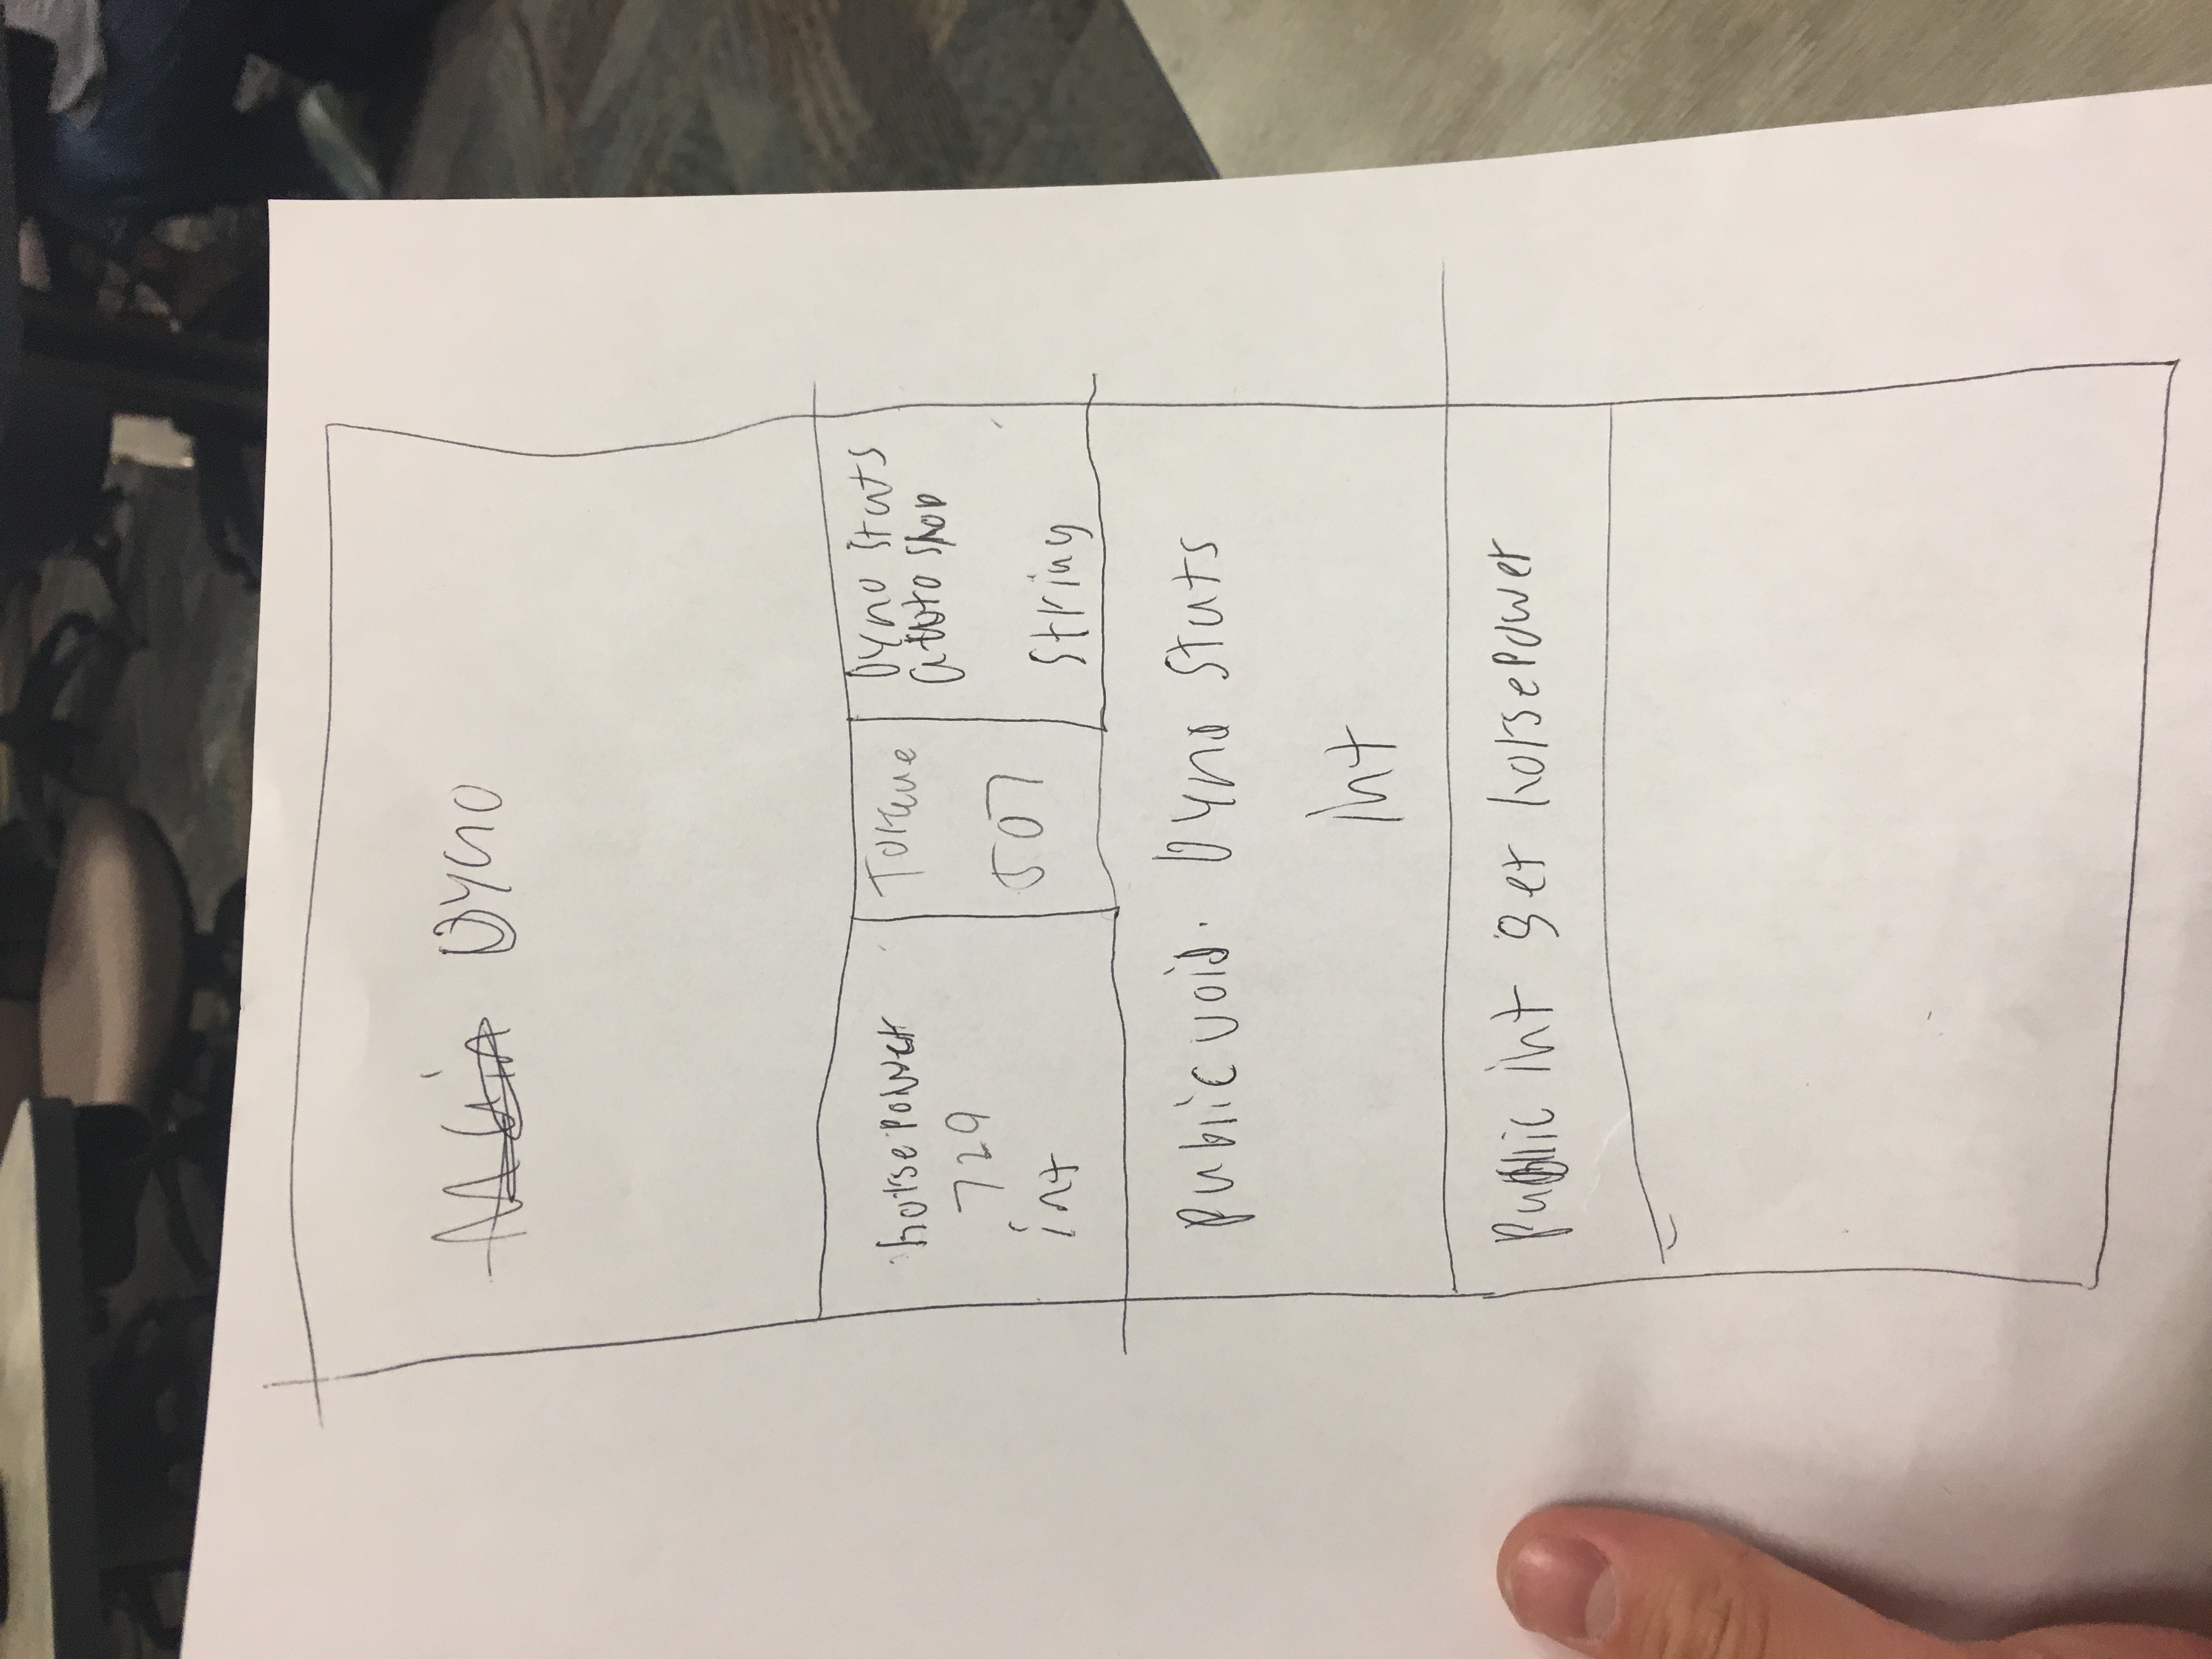 Main Dyno
horsepower
729
int
Torque
507
Dyno Stats
auto shop
String
Public void. Dyno Stats
int
Public int get horsepower